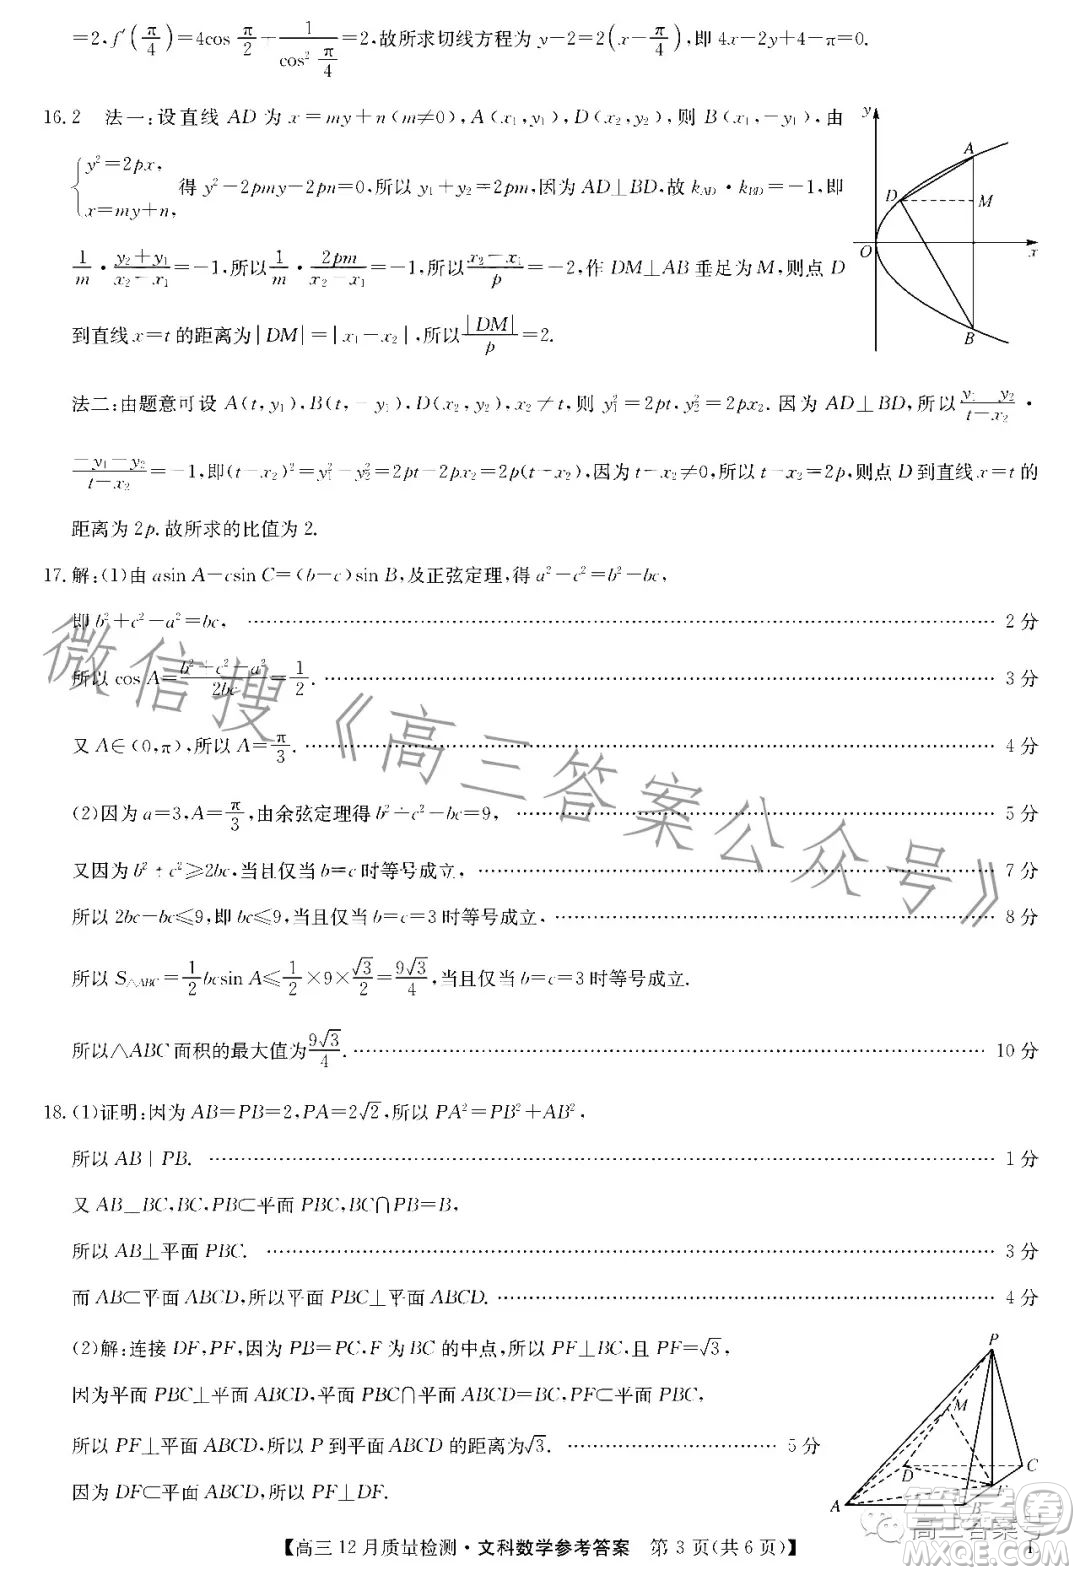 =2,f′(π/4)=4cos π/2+1/cos² π/4=2,故所求切线方程为 y-2=2(x-π/4),即 4x-2y+4-π=0.
16.2 法一:设直线 AD 为 x=my+n(m≠0),A(x₁,y₁),D(x₂,y₂),则 B(x₁,-y₁),由
{y²=2px, x=my+n, 得 y²-2pmy-2pn=0,所以 y₁+y₂=2pm,因为 AD⊥BD,故 k_AD·k_BD=-1,即
1/m·(y₂+y₁)/(x₂-x₁)=-1,所以 1/m·2pm/(x₂-x₁)=-1,所以 (x₂-x₁)/p=-2,作 DM⊥AB 垂足为 M,则点 D
到直线 x=t 的距离为|DM|=|x₁-x₂|,所以 |DM|/p=2.
y
A
D
M
O
x
B
法二:由题意可设 A(t,y₁),B(t,-y₁),D(x₂,y₂),x₂≠t,则 y₁²=2pt,y₂²=2px₂.因为 AD⊥BD,所以 (y₁-y₂)/(t-x₂)·
(-y₁-y₂)/(t-x₂)=-1,即(t-x₂)²=y₁²-y₂²=2pt-2px₂=2p(t-x₂),因为 t-x₂≠0,所以 t-x₂=2p,则点 D 到直线 x=t 的
距离为 2p.故所求的比值为 2.
17.解:(1)由 asin A-csin C=(b-c)sin B,及正弦定理,得 a²-c²=b²-bc,
即 b²+c²-a²=bc, …… 2 分
所以 cos A=(b²+c²-a²)/2bc=1/2. …… 3 分
又 A∈(0,π),所以 A=π/3. …… 4 分
(2)因为 a=3,A=π/3,由余弦定理得 b²+c²-bc=9, …… 5 分
又因为 b²+c²≥2bc,当且仅当 b=c 时等号成立, …… 7 分
所以 2bc-bc≤9,即 bc≤9,当且仅当 b=c=3 时等号成立, …… 8 分
所以 S△ABC=1/2 bcsin A≤1/2×9×√3/2=9√3/4,当且仅当 b=c=3 时等号成立.
所以△ABC 面积的最大值为 9√3/4. …… 10 分
18.(1)证明:因为 AB=PB=2,PA=2√2,所以 PA²=PB²+AB²,
所以 AB⊥PB. …… 1 分
又 AB⊥BC,BC,PB⊂平面 PBC,BC∩PB=B,
所以 AB⊥平面 PBC. …… 3 分
而 AB⊂平面 ABCD,所以平面 PBC⊥平面 ABCD. …… 4 分
(2)解:连接 DF,PF,因为 PB=PC,F 为 BC 的中点,所以 PF⊥BC,且 PF=√3,
因为平面 PBC⊥平面 ABCD,平面 PBC∩平面 ABCD=BC,PF⊂平面 PBC,
所以 PF⊥平面 ABCD,所以 P 到平面 ABCD 的距离为√3. …… 5 分
因为 DF⊂平面 ABCD,所以 PF⊥DF.
P
M
D
C
F
A
B
【高三 12 月质量检测·文科数学参考答案 第 3 页(共 6 页)】
微信搜《高三答案公众号》
答案圈
高三答案号